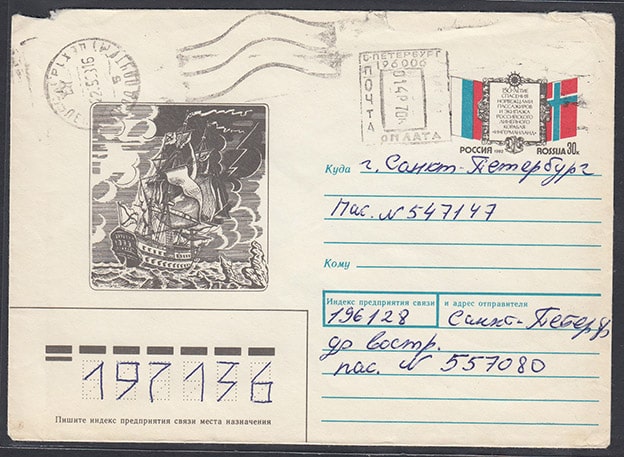 С-ПЕТЕРБУРГ
196006
ПОЧТА
ОПЛАТА
150-ЛЕТИЕ
СПАСЕНИЯ
НОРВЕЖЦАМИ
ПАССАЖИРОВ
И ЭКИПАЖА
РОССИЙСКОГО
ЛИНЕЙНОГО
КОРАБЛЯ
«ИНГЕРМАНЛАНД»
РОССИЯ 1992 ROSSIJA 30к
Куда г. Санкт-Петербург
Пас. N 547147
Кому
Индекс предприятия связи и адрес отправителя
196128 Санкт-Петербур
до востр.
пас. N 557080
197136
Пишите индекс предприятия связи места назначения